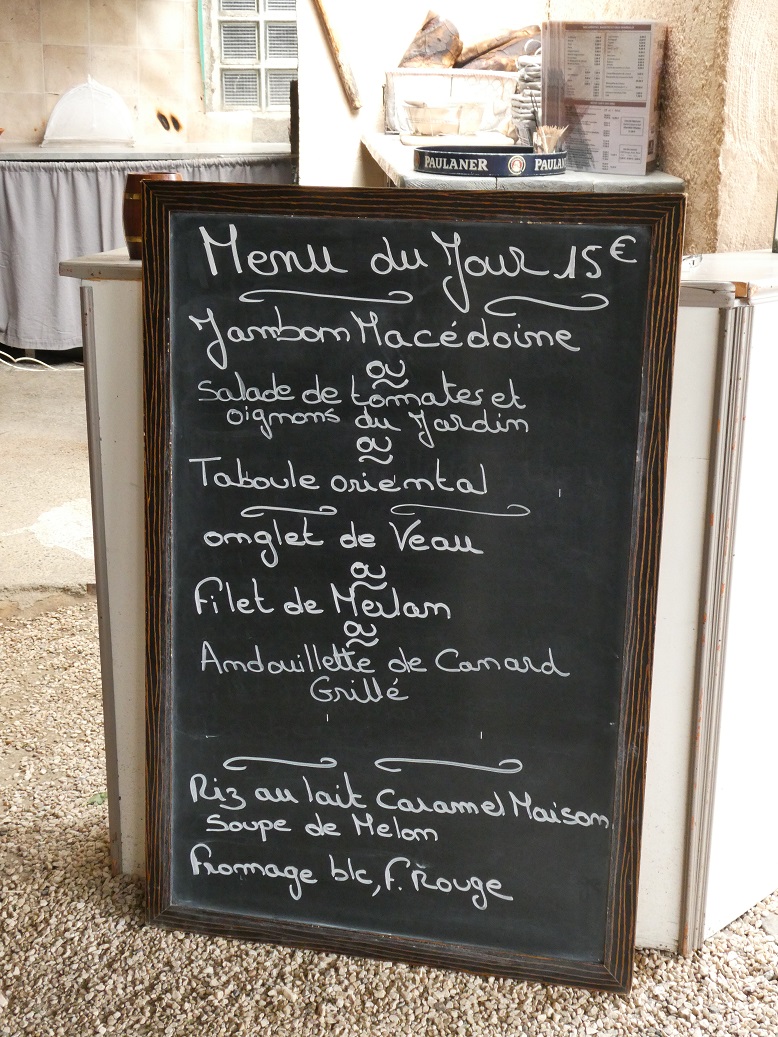 PAULANER PAULA
Menu du Jour 15€
Jambon Macédoine
ou
salade de tomates et
oignons du Jardin
ou
Taboule oriental
onglet de Veau
ou
Filet de Merlan
ou
Andouillette de Canard
Grillé
Riz au lait Caramel Maison
Soupe de Melon
Fromage blc, F. Rouge